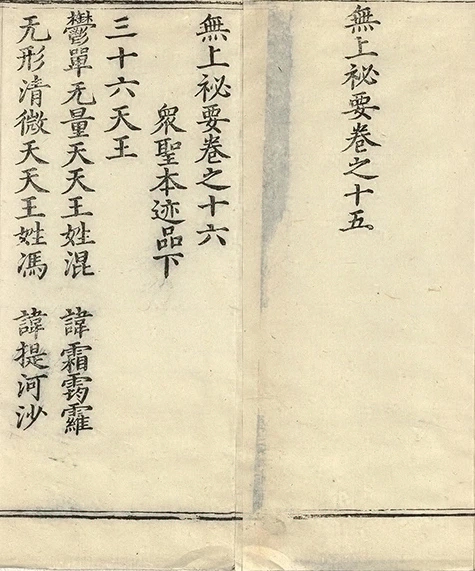 無上祕要卷之十五
無上祕要卷之十六
衆聖本迹品下
三十六天王
鬱單无量天天王姓混 諱霜
无形清微天天王姓馮 諱提河沙